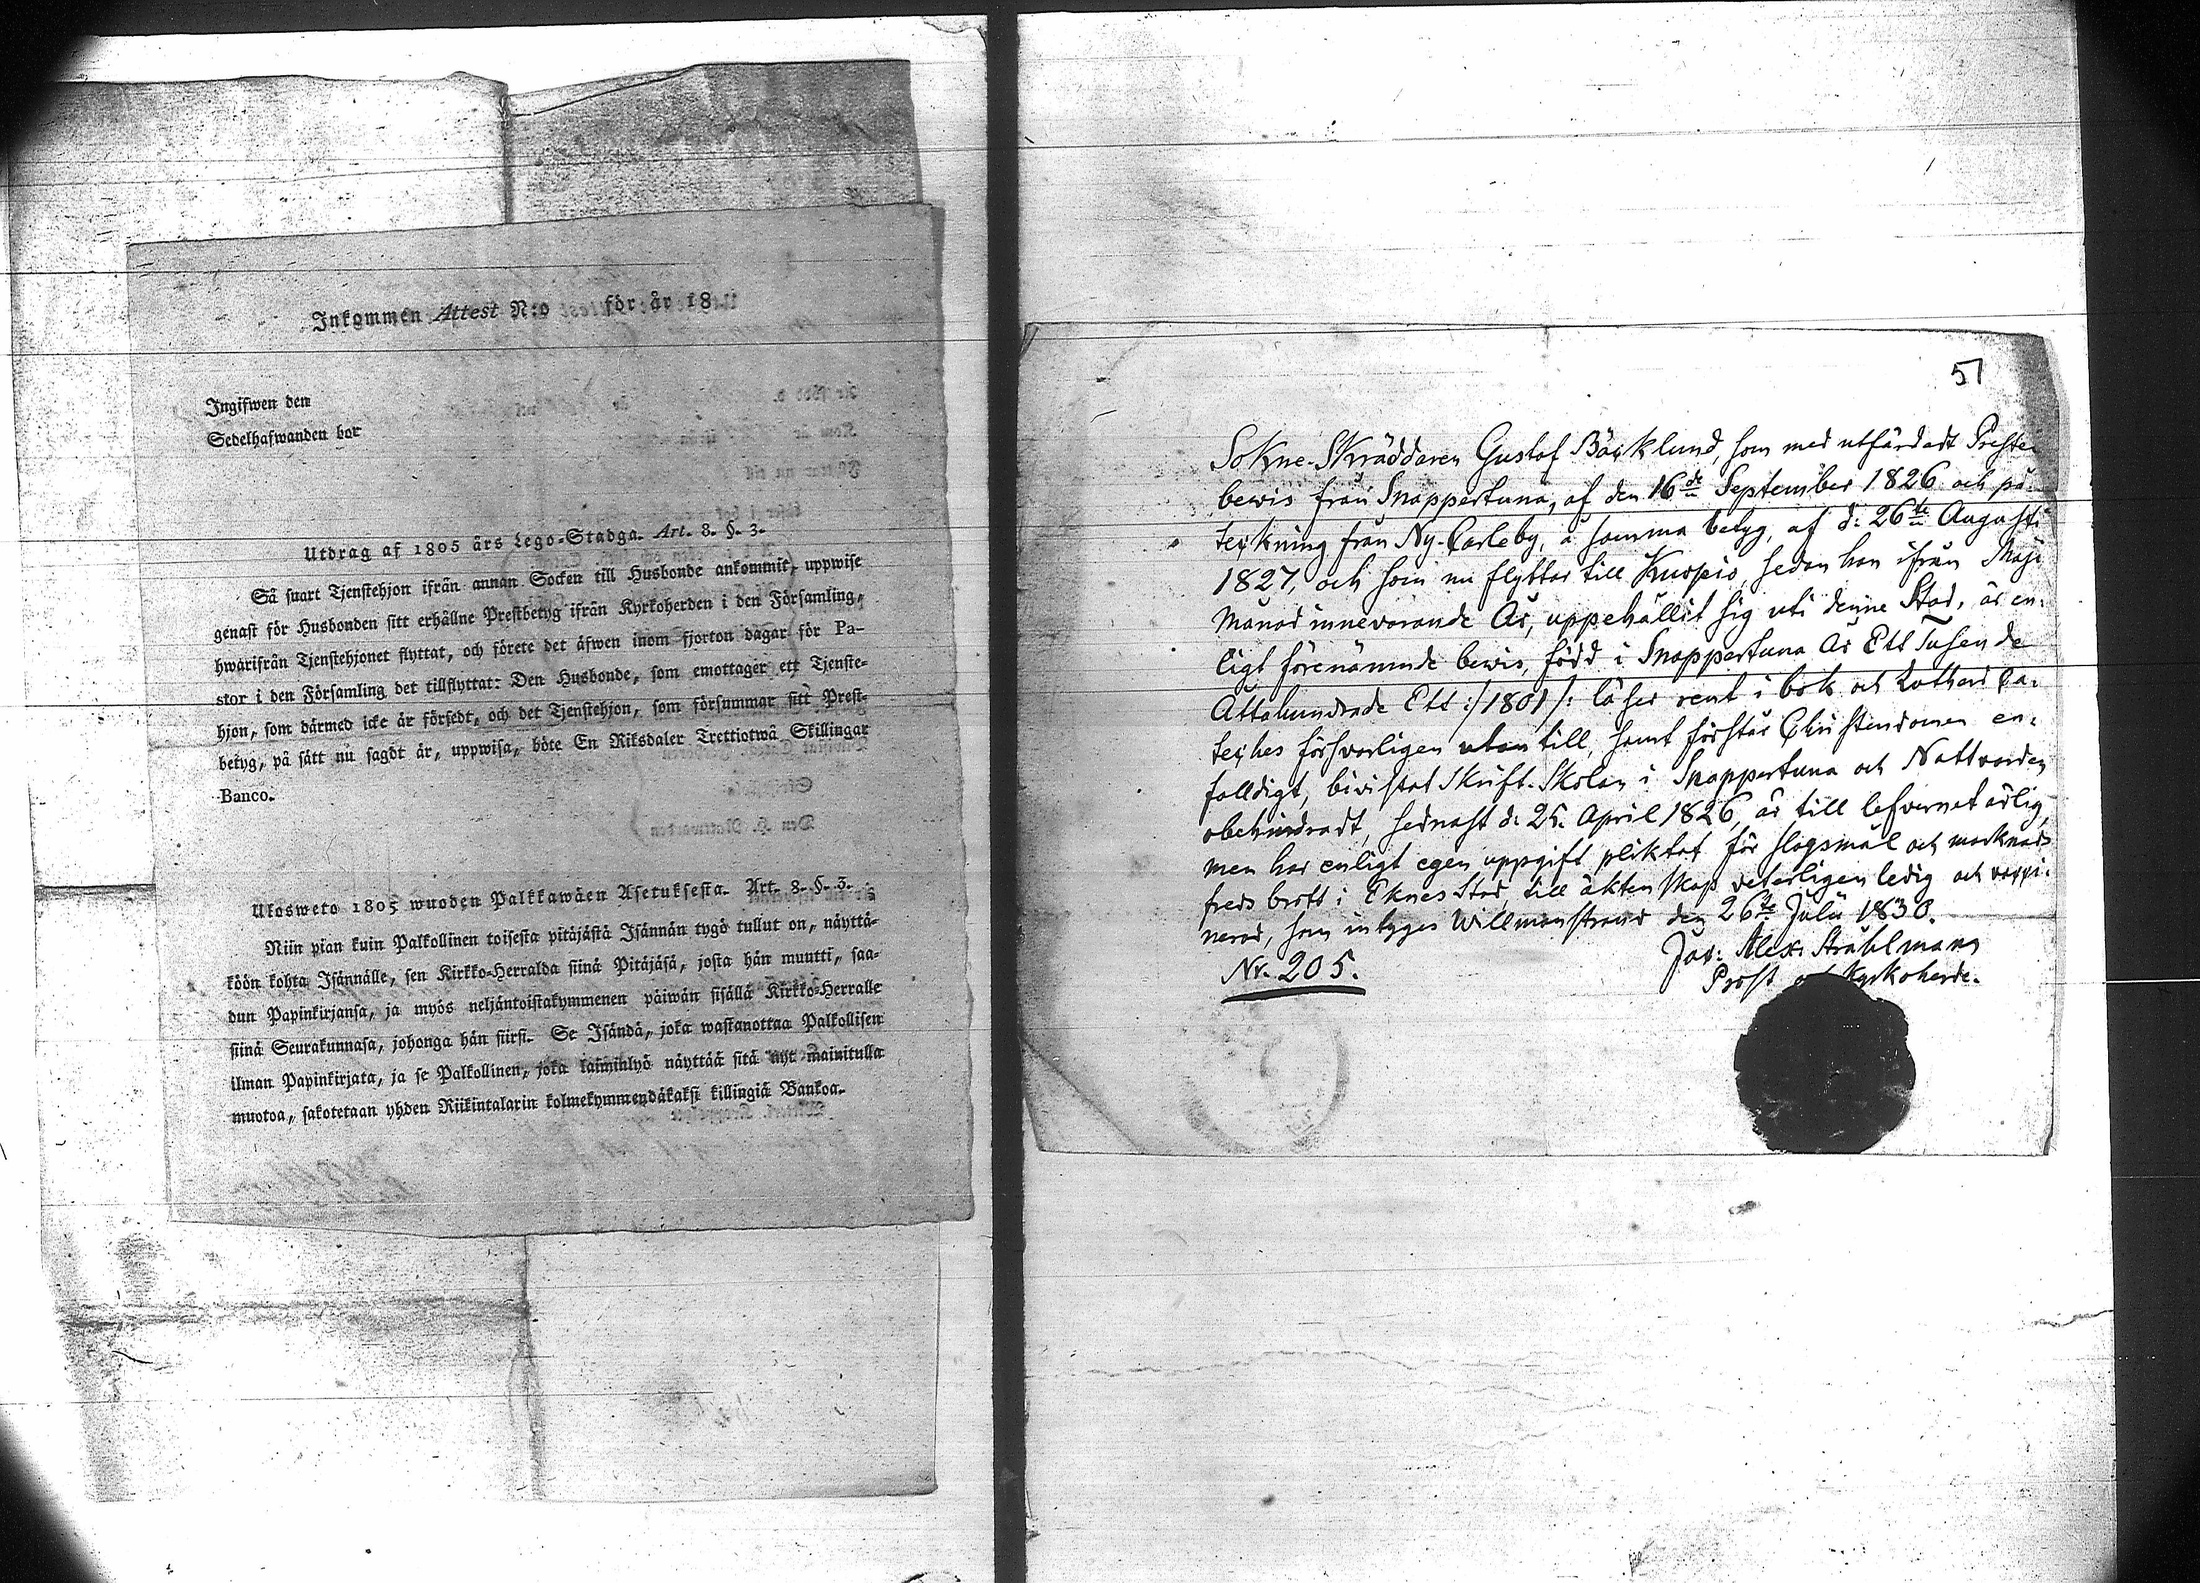 Inkommen Attest N:o för år 18
Ingifwen den
Sedelhafwanden bor
Utdrag af 1805 års Lego-Stadga. Art. 8. §. 3.
Så snart Tjenstehjon ifrån annan Socken till Husbonde ankommit, uppwise
genast för Husbonden sitt erhållne Prestbetyg ifrån Kyrkoherden i den Församling,
hwarifrån Tjenstehjonet flyttat, och förete det äfwen inom fjorton dagar för Pa-
stor i den Församling det tillflyttat: Den Husbonde, som emottager ett Tjenste-
hjon, som därmed icke är försedt, och det Tjenstehjon, som försummar sitt Prest-
betyg, på sätt nu sagdt är, uppwisa, böte En Riksdaler Trettiotwå Skillingar
Banco.
Ulosweto 1805 wuoden Palkkawäen Asetuksesta. Art. 8. §. 3.
Niin pian kuin Palkollinen toisesta pitäjästä Isännän tygö tullut on, näyttä-
köön kohta Isännälle, sen Kirkko-Herralda siinä Pitäjäsä, josta hän muutti, saa-
dun Papinkirjansa, ja myös neljäntoistakymmenen päiwän sisällä Kirkko-Herralle
siinä Seurakunnasa, johonga hän siirsi. Se Isändä, joka wastanottaa Palkollisen
ilman Papinkirjata, ja se Palkollinen, joka laiminlyö näyttää sitä nyt mainitulla
muotoa, sakotetaan yhden Riikintalarin kolmekymmendäkaksi killingiä Bankoa.
57
Sokne-Skräddaren Gustaf Bäcklund, som med utfärdadt Preste-
bewis från Snappertuna, af den 16de September 1826 och på-
teckning från Ny-Carleby, å samma betyg, af d: 26te Augusti
1827, och som nu flyttar till Kuopio, sedan han ifrån Maji
Månad innevarande År, uppehållit sig uti denne Stad, är en-
ligt förenämnde bewis, född i Snappertuna År Ett Tusende
Åttahundrade Ett :/1801/: läser rent i bok och Lutheri Ca-
teches försvarligen utantill, samt förstår Christendomen en-
falldigt, bivistat Skrift-Skolan i Snappertuna och Nattvarden
obehindradt, sednast d: 25. April 1826, är till lefvernet ärlig,
men har enligt egen uppgift pliktat för slagsmål och marknads
freds brott i Eknes Stad, till äktenskap veterligen ledig och vacci-
nerad, som intyges Willmanstrand den 26te Julii 1830.
Nr. 205.
Jac: Alex: Stråhlmann
Prost och Kyrkoherde.